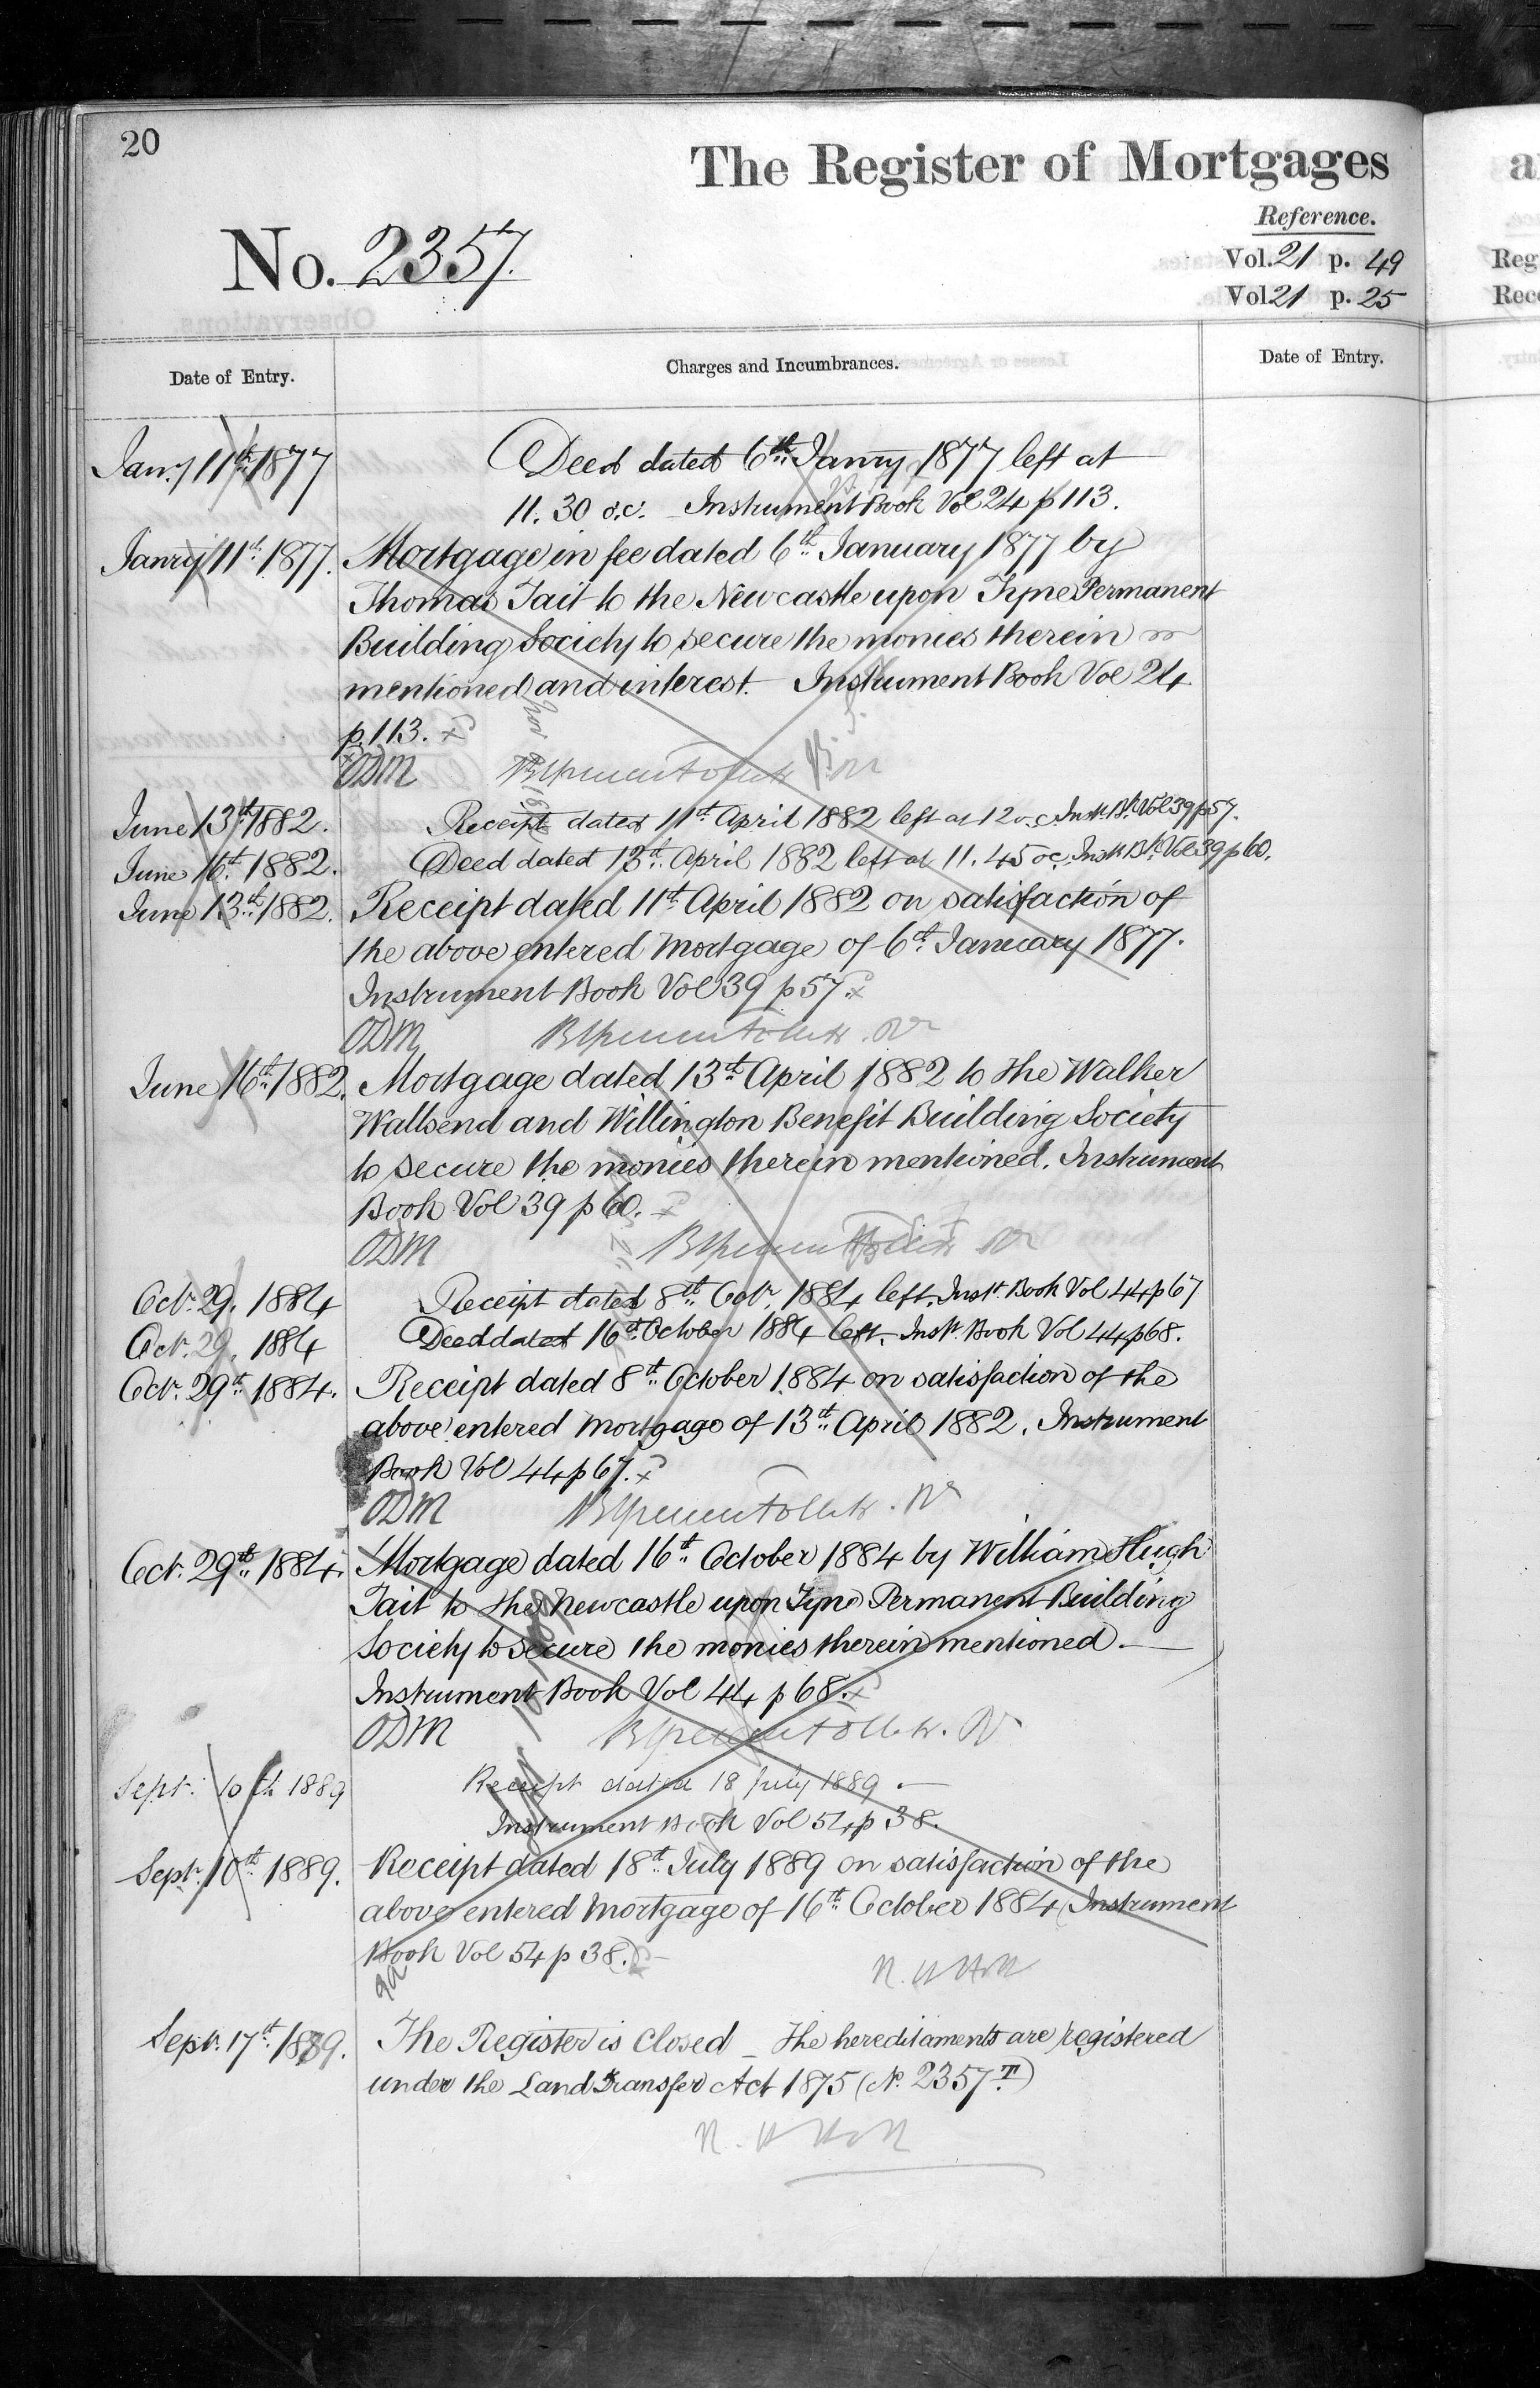 20
The Register of Mortgages
Reference.
No. 2357.
Vol. 21 p. 49
Vol. 21 p. 25
Date of Entry.
Charges and Incumbrances.
Date of Entry.
Jany 11th 1877 Deed dated 6th Janry 1877 left at
11.30 o.c. Instrument Book Vol 24 p 113.
Janry 11th 1877. Mortgage in fee dated 6th January 1877 by
Thomas Tait to the Newcastle upon Tyne Permanent
Building Society to secure the monies therein
mentioned and interest. Instrument Book Vol 24
p. 113.
ODM
June 13th 1882. Receipt dated 11th April 1882 left at 12 o.c. Inst. Bk. Vol 39 p 57.
June 16th 1882. Deed dated 13th April 1882 left at 11.45 oc. Inst. Bk. Vol 39 p 60.
June 13th 1882. Receipt dated 11th April 1882 on satisfaction of
the above entered Mortgage of 6th January 1877.
Instrument Book Vol 39 p 57.
ODM
June 16th 1882. Mortgage dated 13th April 1882 to the Walker
Wallsend and Willington Benefit Building Society
to secure the monies therein mentioned. Instrument
Book Vol 39 p 60.
ODM
Oct. 29. 1884 Receipt dated 8th Octr. 1884 left. Inst. Book Vol 44 p 67
Oct. 29. 1884 Deed dated 16th October 1884 left. Inst. Book Vol 44 p 68.
Oct. 29th 1884. Receipt dated 8th October 1884 on satisfaction of the
above entered Mortgage of 13th April 1882. Instrument
Book Vol 44 p 67.
ODM
Oct. 29th 1884. Mortgage dated 16th October 1884 by William Hugh
Tait to the Newcastle upon Tyne Permanent Building
Society to secure the monies therein mentioned.
Instrument Book Vol 44 p 68.
ODM
Sept. 10th 1889 Receipt dated 18 July 1889.
Instrument Book Vol 54 p 38.
Sept. 10th 1889. Receipt dated 18th July 1889 on satisfaction of the
above entered Mortgage of 16th October 1884 (Instrument
Book Vol 54 p 38.)
Sept. 17th 1889. The Register is Closed _ The hereditaments are registered
under the Land Transfer Act 1875 (No. 2357 T)
a
Reg
Rec